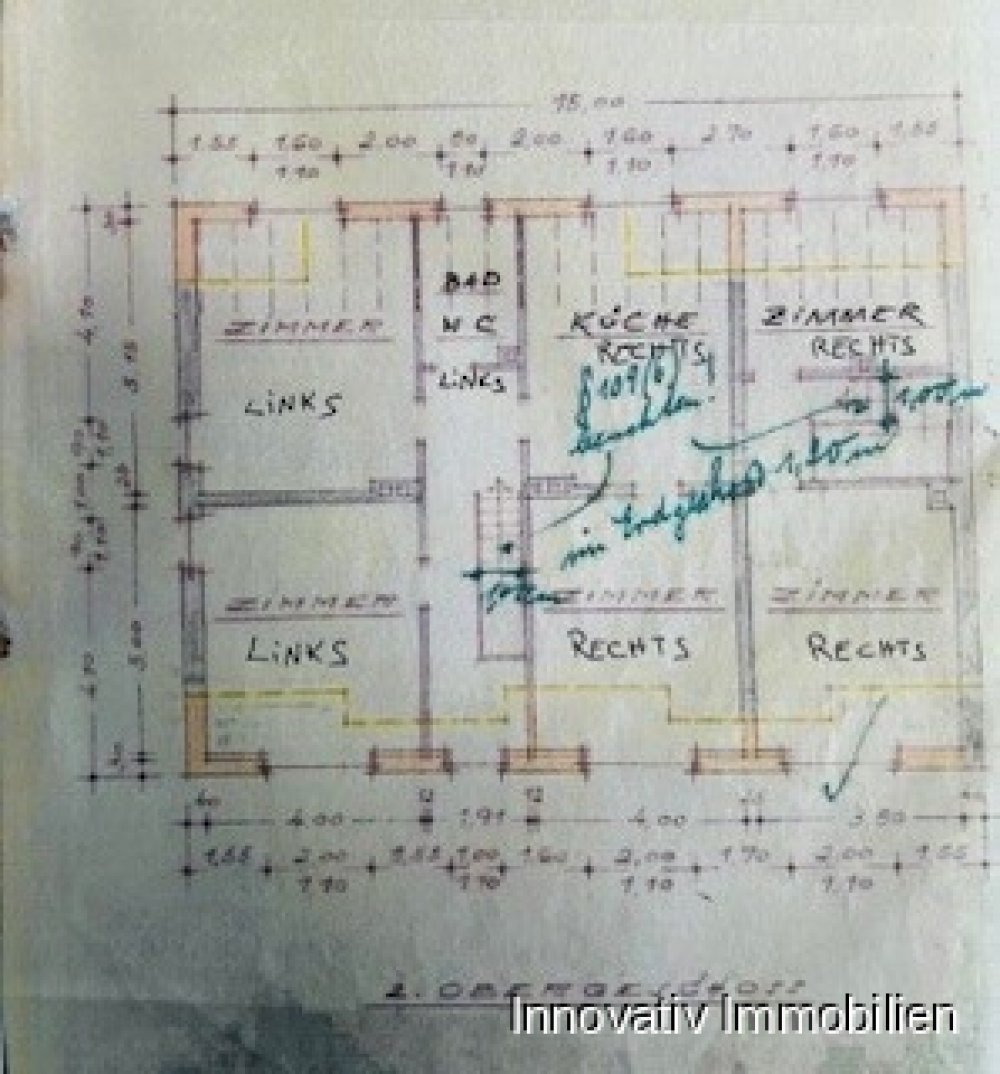 15,00
1,55 1,60 2,00 80 2,00 1,60 2,70 1,60 1,55
1,10 1,10 1,10 1,10
BAD
WC
LINKS
ZIMMER
LINKS
KÜCHE
RECHTS
ZIMMER
RECHTS
4,70
5,15
1,00 m
im Erdgeschoss 1,20 m
ZIMMER
LINKS
ZIMMER
RECHTS
ZIMMER
RECHTS
5,00
4,00 12 1,91 12 4,00 3,50
1,55 2,00 1,55 1,00 1,60 2,00 1,70 2,00 1,55
1,10 1,10 1,10 1,10
2. OBERGESCHOSS
Innovativ Immobilien